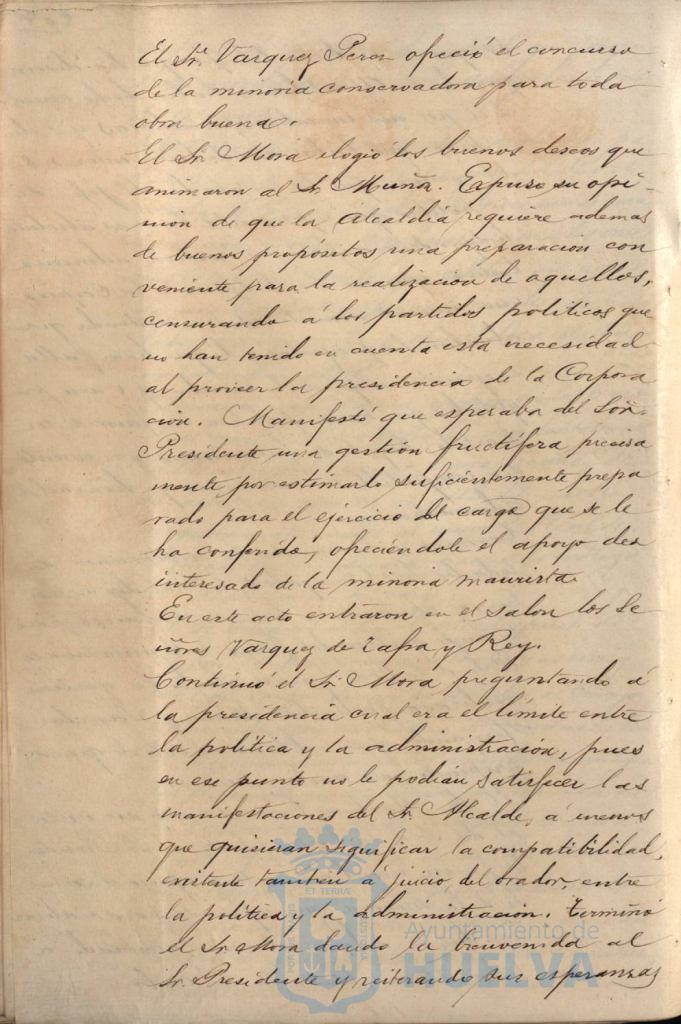 El Sr. Vazquez Perez ofreció el concurso
de la minoria conservadora para toda
obra buena.
El Sr. Mora elogió los buenos deseos que
animaron al Sr. Muñoz. Expuso su opi-
nion de que la Alcaldia requiere ademas
de buenos propósitos una preparacion con
veniente para la realizacion de aquellos,
censurando á los partidos politicos que
no han tenido en cuenta esta necesidad
al proveer la presidencia de la Corpora
cion. Manifestó que esperaba del Señor
Presidente una gestión fructífera precisa
mente por estimarlo suficientemente prepa
rado para el ejercicio del cargo que se le
ha conferido, ofreciéndole el apoyo des
interesado de la minoria maurista.
En este acto entraron en el salon los Se
ñores Vazquez de Zafra y Rey.
Continuó el Sr. Mora preguntando á
la presidencia cual era el límite entre
la política y la administración, pues
en ese punto no le podian satisfacer las
manifestaciones del Sr. Alcalde, á menos
que quisieran significar la compatibilidad,
existente tambien á juicio del orador, entre
la política y la administración. Terminó
el Sr. Mora dando la bienvenida al
Sr. Presidente y reiterando sus esperanzas
ET TERRA
Ayuntamiento de
HUELVA